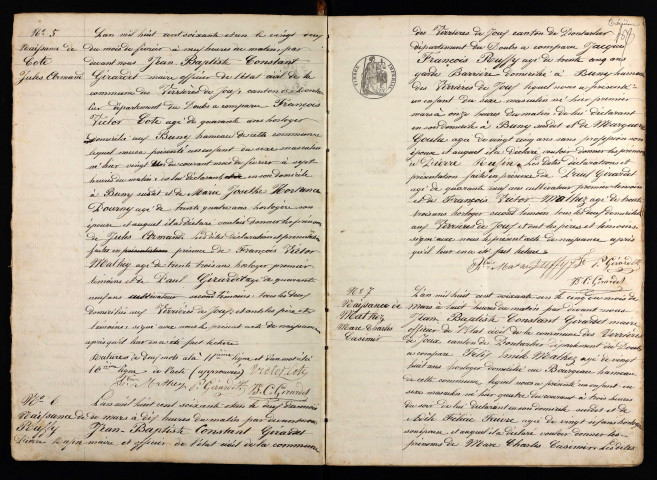 N° 5
Naissance de
Cote
Jules Armand
L'an mil huit cent soixante et un le vingt neuf
du mois de février à neuf heures du matin, par
devant nous Jean Baptiste Constant
Girardet maire officier de l'état civil de la
commune des Verrières de Joux canton de Pontarlier
département du Doubs a comparu François
Victor Cote agé de quarante ans horloger
domicilié aux Buny hameau de cette commune
lequel nous a présenté un enfant du sexe masculin
né hier vingt du courant mois de février à sept
heures du matin de lui déclarant en son domicile
à Buny susdit et de Marie Josèthe Hortence
Dourny agé de trente quatre ans horlogère son
épouse et auquel il a déclaré vouloir donner les prénoms
de Jules Armand. Les dites déclaration et présentation
faites en présence de François Victor
Mathez agé de trente trois ans horloger premier
témoins et de Paul Girardet agé de quarante
neuf ans cultivateur second témoins tous les deux
domiciliés aux Verrières de Joux, et ont les père et
témoins signé avec nous le présent acte de naissance
après qu'il leur en a été fait lecture
Ratures de deux mots à la 11ème ligne et d'un mot à la
16ème ligne de l'acte (approuvées) Victor Cote
Mathez P. Girardet B. C. Girardet
N° 6
Naissance de
Ruffy
Pierre Rufin
L'an mil huit cent soixante et un le deux du mois
de mars à dix heures du matin par devant nous
Jean Baptiste Constant Girardet
maire et officier de l'état civil de la commune
des Verrières de Joux canton de Pontarlier
département du Doubs a comparu Jacques
François Ruffy agé de trente cinq ans
garde Barrière domicilié à Buny hameau
des Verrières de Joux lequel nous a présenté
un enfant du sexe masculin né hier premier
mars à onze heures du matin de lui déclarant
en son domicile à Buny susdit et de Marguerite
Goulie agé de vingt cinq ans sans profession son
épouse et auquel il a déclaré vouloir donner les prénoms
de Pierre Rufin. Les dites déclarations et
présentation faites en présence de Paul Girardet
agé de quarante neuf ans cultivateur premier témoin
et de François Victor Mathez agé de trente
trois ans horloger second témoin tous les deux domiciliés
aux Verrières de Joux et ont les père et témoins
signé avec nous le présent acte de naissance, après
qu'il leur en a été fait lecture
Mathez Ruffy P. Girardet
B. C. Girardet
N° 7
Naissance de
Mathez
Marc Charles
Casimir
L'an mil huit cent soixante et un le cinq du mois de
mars à huit heures du matin par devant nous
Jean Baptiste Constant Girardet maire
officier de l'état civil de la commune des Verrières
de Joux, canton de Pontarlier département du Doubs
a comparu Petit Emile Mathez agé de vingt
huit ans horloger domicilié au Bourgeau hameau
de cette commune, lequel nous a présenté un enfant du
sexe masculin né hier quatre du courant à trois heures
du soir de lui déclarant en son domicile susdit et de
Adèle Félicie Faivre agé de vingt six ans horlogère
son épouse et auquel il a déclaré vouloir donner les
prénoms de Marc Charles Casimir. Les dites